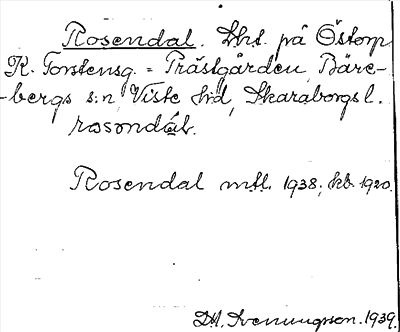 Rosendal. Lht. på Östorp
K. Torstensg. = Prästgården, Bäre-
-bergs s:n, Viste hd, Skaraborgs l.
rosəndɑ́l.
Rosendal mtl. 1938; kb. 1920.
D.H. Svenungsson. 1939.